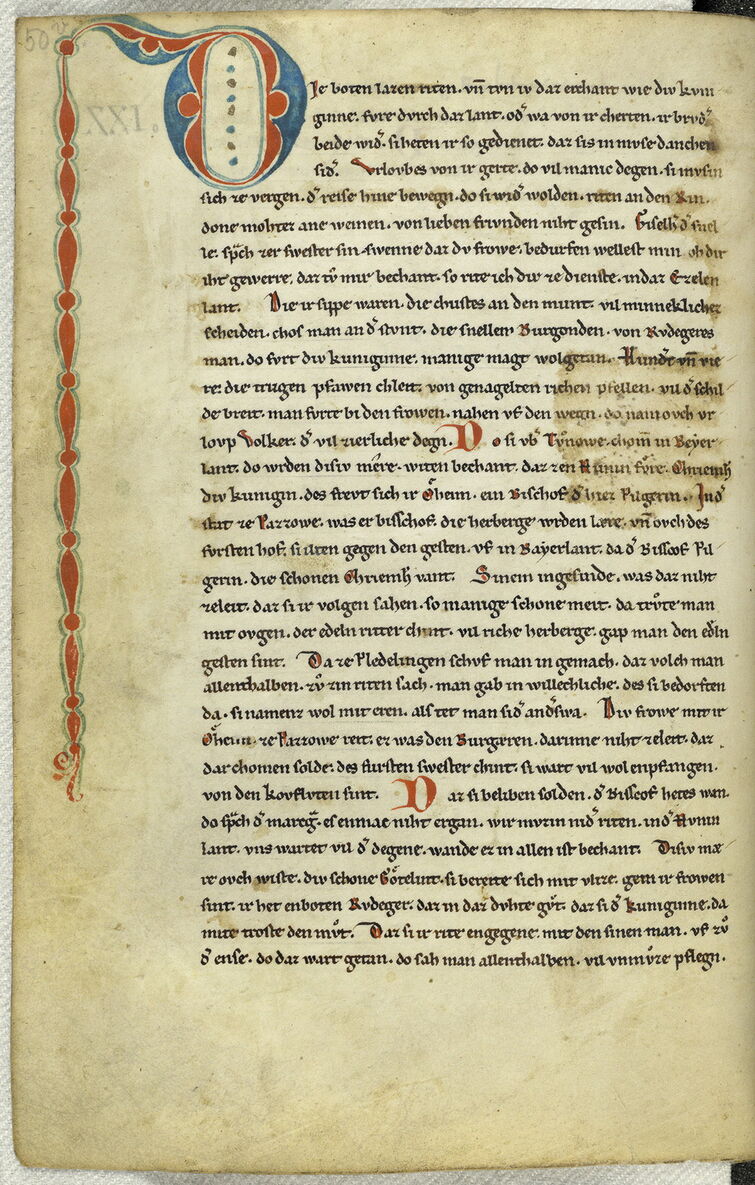 50v
XXI.
Die boten lazen riten. vñ tvn iv daz erchant wie div kvni
ginne. fvre dvrch daz lant. odˀ wa von ir cherten. ir brvdˀ
beide widˀ. si heten ir so gedienet. daz sis in mvse danchen
sidˀ. Vrlovbes von ir gerte. do vil manic degen. si mvsin
sich ze vergen. dˀ reise hine bewegn. do si widˀ wolden. riten an den Rin.
done mohtez ane weinen. von lieben frivnden niht gesin. Giselhˀ dˀ snel
le. spͣch zer swester sin. swenne daz dv frowe. bedurfen wellest min. ob dir
iht gewerre. daz tv̊ mir bechant. so rite ich dir ze dienste. in daz Ezelen
lant. Die ir sippe waren. die chustes an den munt. vil minneklichez
scheiden. chos man an dˀ stvnt. die snellen Burgonden. von Rvdegeres
man. do fvrt div kuniginne. manige magt wolgetan. Hundˀt vñ vie
re. die trugen pfawen chleit. von genagelten richen pfellen. vil dˀ schil
de breit. man fvrte bi den frowen. nahen vf den wegn. do nam ovch vr
lovp Volker. dˀ vil zierliche degn. Do si vbˀ Tv̊nowe. chomˉ in Beyer
lant. do wrden disiv mêre. witen bechant. daz zen Hunin fv̊re. Chriemh
div kunigin. des frevt sich ir Ŏheim. ein Bischof dˀ hiez Pilgerin. In dˀ
stat ze Pazzowe. was er bisschof. die herberge wrden lære. vñ ovch des
fvrsten hof. si ilten gegen den gesten. vf in Bayerlant. da dˀ Biscof Pil
gerin. die schonen Chriemh̄ vant. Sinem ingesinde. was daz niht
ze leit. daz si ir volgen sahen. so manige schone meit. da trv̊te man
mit ovgen. der edeln ritter chint. vil riche herberge. gap man den edˀln
gesten sint. Da ze Pledelingen schvf man in gemach. daz volch man
allenthalben. zv̊ zin riten sach. man gab in willechliche. des si bedorften
da. si namenz wol mit eren. als tet man sidˀ andˀswa. Div frowe mit ir
Ŏheim. ze Pazzowe reit. ez was den Burgæren. darinne niht ze leit. daz
dar chomen solde. des fursten swester chint. si wart vil wol enpfangen.
von den kovflvten sint. Daz si beliben solden. dˀ Biscof hetes wan.
do spͣch dˀ marcgͣ. es enmac niht ergan. wir mvzin nidˀ riten. in dˀ Hvnin
lant. vns wartet vil dˀ degene. wande ez in allen ist bechant. Disiv mæ
re ovch wiste. div schone Go̊telint. si bereite sich mit vlize. gein ir frowen
sint. ir het enboten Rvdeger. daz in daz dvhte gv̊t. daz si dˀ kuniginne. da
mite troste den mv̊t. Daz si ir rite engegene. mit den sinen man. vf zv̊
dˀ ense. do daz wart getan. do sah man allenthalben. vil vnmv̊ze pflegn.